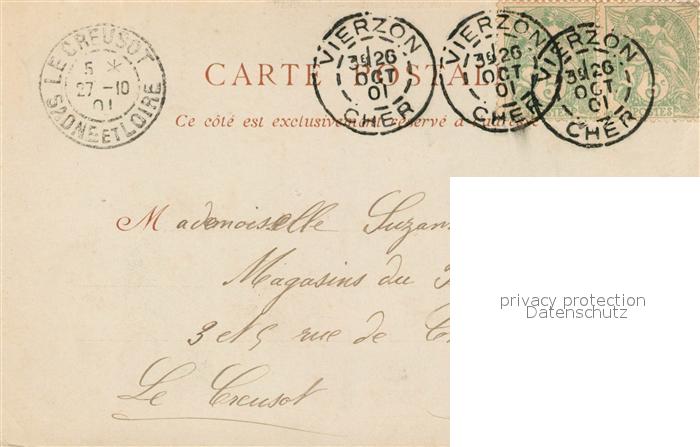 LE CREUSOT
5 *
27 -10
01
SÔNE ET LOIRE
VIERZON
3E 26
OCT
01
CHER
VIERZON
3E 26
OCT
01
CHER
VIERZON
3E 26
OCT
01
CHER
CARTE POSTALE
Ce côté est exclusivement réservé à l'adresse
Mademoiselle Suzan
Magasins du
3 et 5 rue de
Le Creusot
privacy protection
Datenschutz